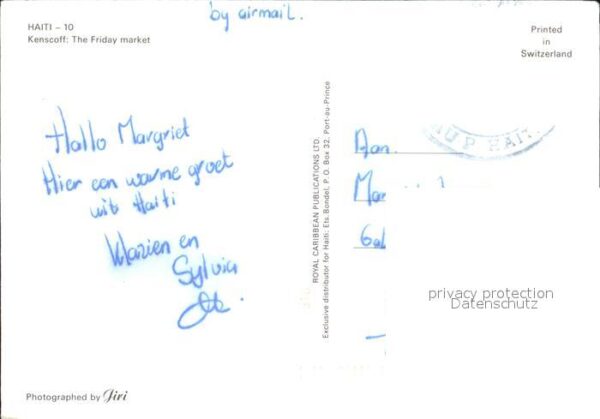 by airmail.
HAITI – 10
Kenscoff: The Friday market
Printed
in
Switzerland
Hallo Margriet
Hier een warme groet
uit Haiti
Marien en
Sylvia
ROYAL CARIBBEAN PUBLICATIONS LTD.
Exclusive distributor for Haiti: Ets. Bondel, P.O. Box 32, Port-au-Prince
AU P HAIT
Aan.
Ma
privacy protection
Datenschutz
Photographed by Jiri